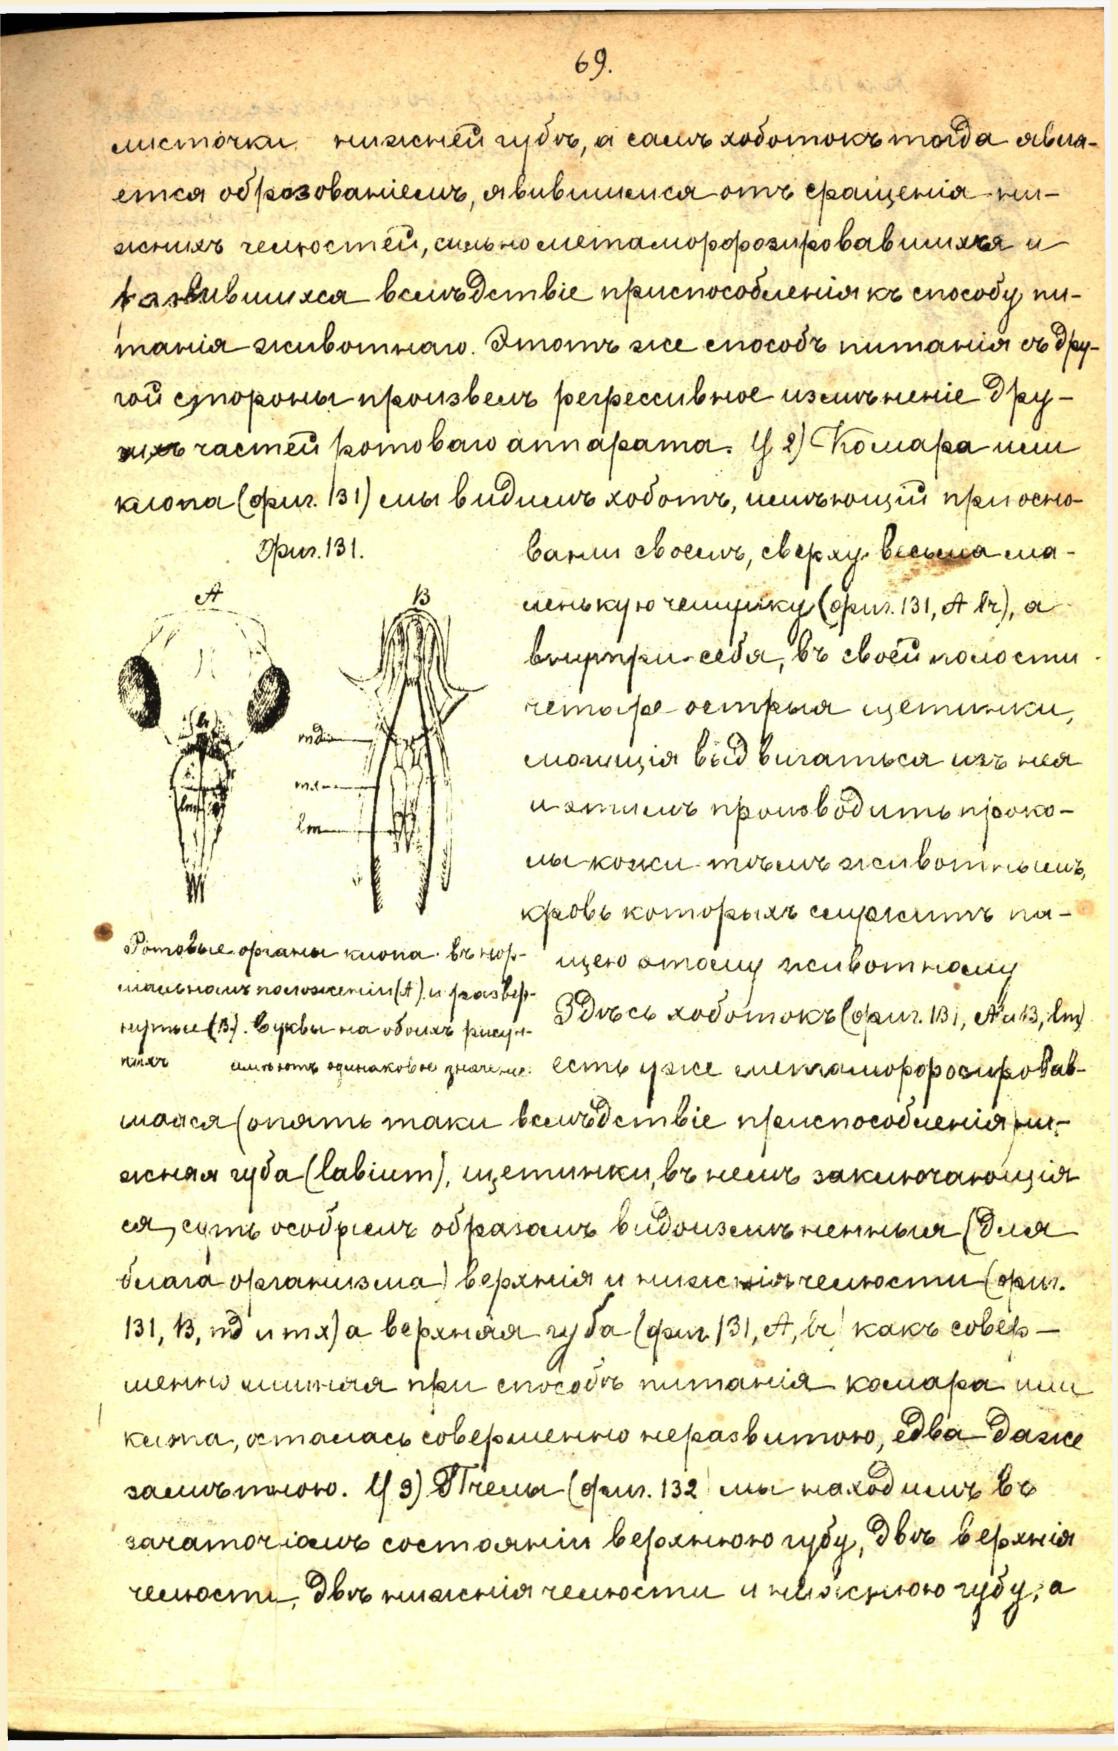 69.
листочки нижней губы, а самъ хоботокъ тогда явля-
ется образованіемъ, явившимся отъ сращенія ни-
жнихъ челюстей, сильно метаморфозировавшихся и
развившихся вслѣдствіе приспособленія къ способу пи-
танія животнаго. Этотъ же способъ питанія съ дру-
гой стороны произвелъ регрессивное измѣненіе дру-
гихъ частей ротоваго аппарата. У 2) Комара или
клопа (фиг. 131) мы видимъ хоботъ, имѣющій при осно-
ваніи своемъ, сверху весьма ма-
ленькую чешуйку (фиг. 131, A lr), а
внутри себя, въ своей полости
четыре острыя щетинки,
могущія выдвигаться изъ нея
и этимъ производить проко-
лы кожи тѣмъ животнымъ,
кровь которыхъ служитъ пи-
щею этому животному
Здѣсь хоботокъ (фиг. 131, A и B, lm)
есть уже метаморфозировав-
шаяся (опять таки вслѣдствіе приспособленія) ни-
жняя губа (labium), щетинки, въ немъ заключающія
ся, суть особымъ образомъ видоизмѣненныя (для
блага организма) верхнія и нижнія челюсти (фиг.
131, B, md и mx) а верхняя губа (фиг. 131, A, lr) какъ совер-
шенно лишняя при способѣ питанія комара или
клопа, осталась совершенно неразвитою, едва даже
замѣтною. У 3) Пчелы (фиг. 132) мы находимъ въ
зачаточномъ состояніи верхнюю губу, двѣ верхнія
челюсти, двѣ нижнія челюсти и нижнюю губу; а
Фиг. 131.
A B
lr
md
mx
lm
lm
Ротовые органы клопа въ нор-
мальномъ положеніи (A) и развер-
нутые (B). Буквы на обоихъ рисун-
кахъ имѣютъ одинаковое значеніе.